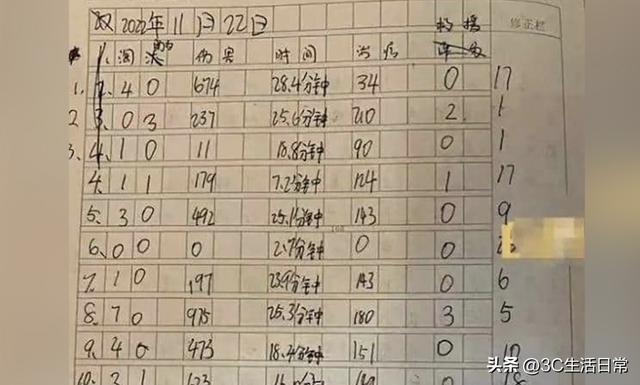 双 2022年11月22日
修正栏
淘汰 伤害 时间 治疗
1. 4 0 674 28.4分钟 34 0 17
2 3. 0 3 237 25.6分钟 210 2 1
3. 4. 1 0 11 18.8分钟 90 0 1
4. 1 1 179 7.2分钟 124 1 17
5. 3 0 492 25.1分钟 143 0 9
6. 0 0 0 2.7分钟 0 0
7. 1 0 197 23.9分钟 143 0 6
8. 7 0 975 25.3分钟 180 3 5
9. 4 0 473 18.4分钟 151 0
10. 3 1 123
头条 @3C生活日常